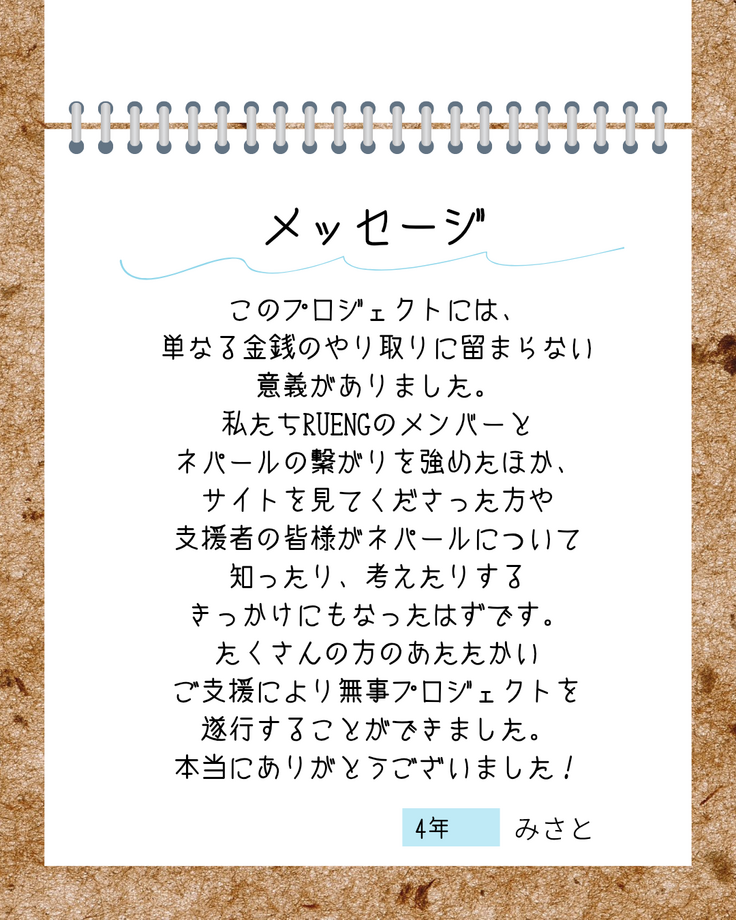 メッセージ
このプロジェクトには、
単なる金銭のやり取りに留まらない
意義がありました。
私たちRUENGのメンバーと
ネパールの繋がりを強めたほか、
サイトを見てくださった方や
支援者の皆様がネパールについて
知ったり、考えたりする
きっかけにもなったはずです。
たくさんの方のあたたかい
ご支援により無事プロジェクトを
遂行することができました。
本当にありがとうございました！
4年 みさと